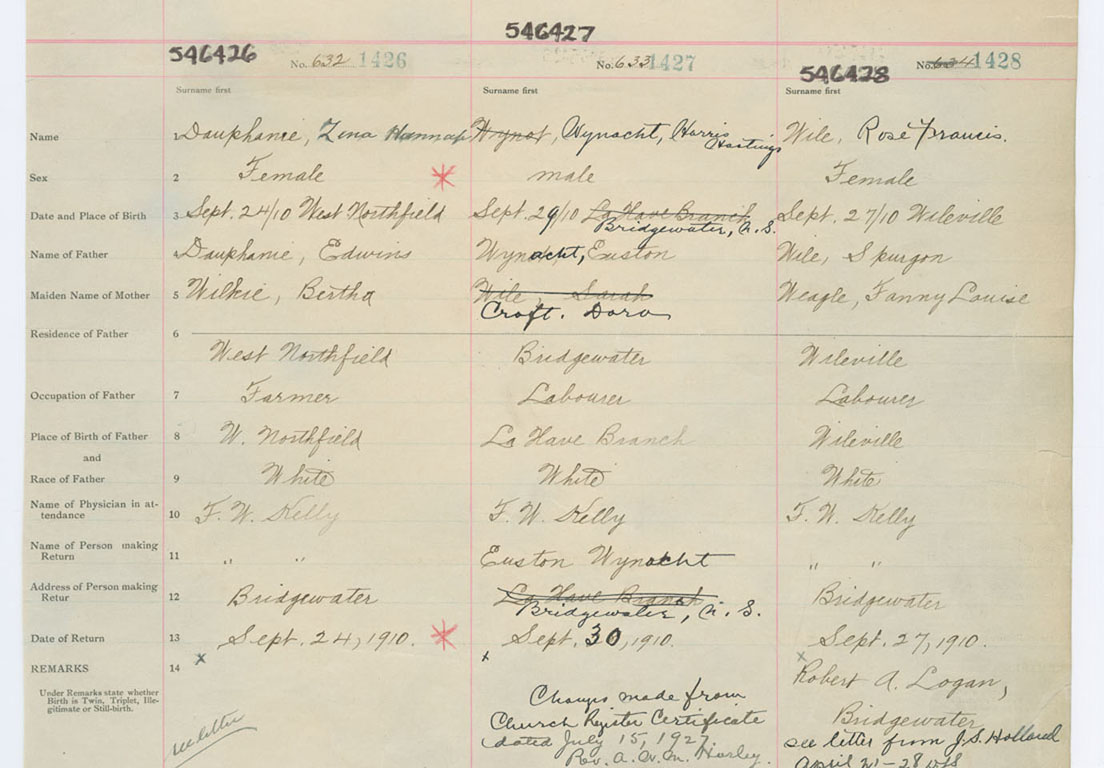 546426 No. 632 1426
546427 No. 633 1427
546428 No. 634 1428
Surname first Surname first Surname first
Name 1 Dauphanie, Zena Hannah Wynot, Wynacht, Harris Hastings Wile, Rose Francis.
Sex 2 Female male Female
Date and Place of Birth 3 Sept. 24/10 West Northfield Sept. 29/10 La Have Branch Bridgewater, N.S. Sept. 27/10 Wileville
Name of Father Dauphanie, Edwins Wynacht, Euston Wile, Spurgon
Maiden Name of Mother 5 Wilkie, Bertha Wile, Sarah Croft. Dora Weagle, Fanny Louise
Residence of Father 6 West Northfield Bridgewater Wileville
Occupation of Father 7 Farmer Labourer Labourer
Place of Birth of Father 8 W. Northfield La Have Branch Wileville
and
Race of Father 9 White White White
Name of Physician in at-
tendance 10 F. W. Kelly F. W. Kelly F. W. Kelly
Name of Person making
Return 11 " " Euston Wynacht " "
Address of Person making
Retur 12 Bridgewater La Have Branch Bridgewater, N. S. Bridgewater
Date of Return 13 Sept. 24, 1910. Sept. 30, 1910. Sept. 27, 1910.
REMARKS 14 x x x
Under Remarks state whether
Birth is Twin, Triplet, Ille-
gitimate or Still-birth.
see letter
Changes made from
Church Register Certificate
dated July 15, 1927
Rev. A. W. M. Harley.
Robert A. Logan,
Bridgewater
see letter from J.S. Holland
April 21-28